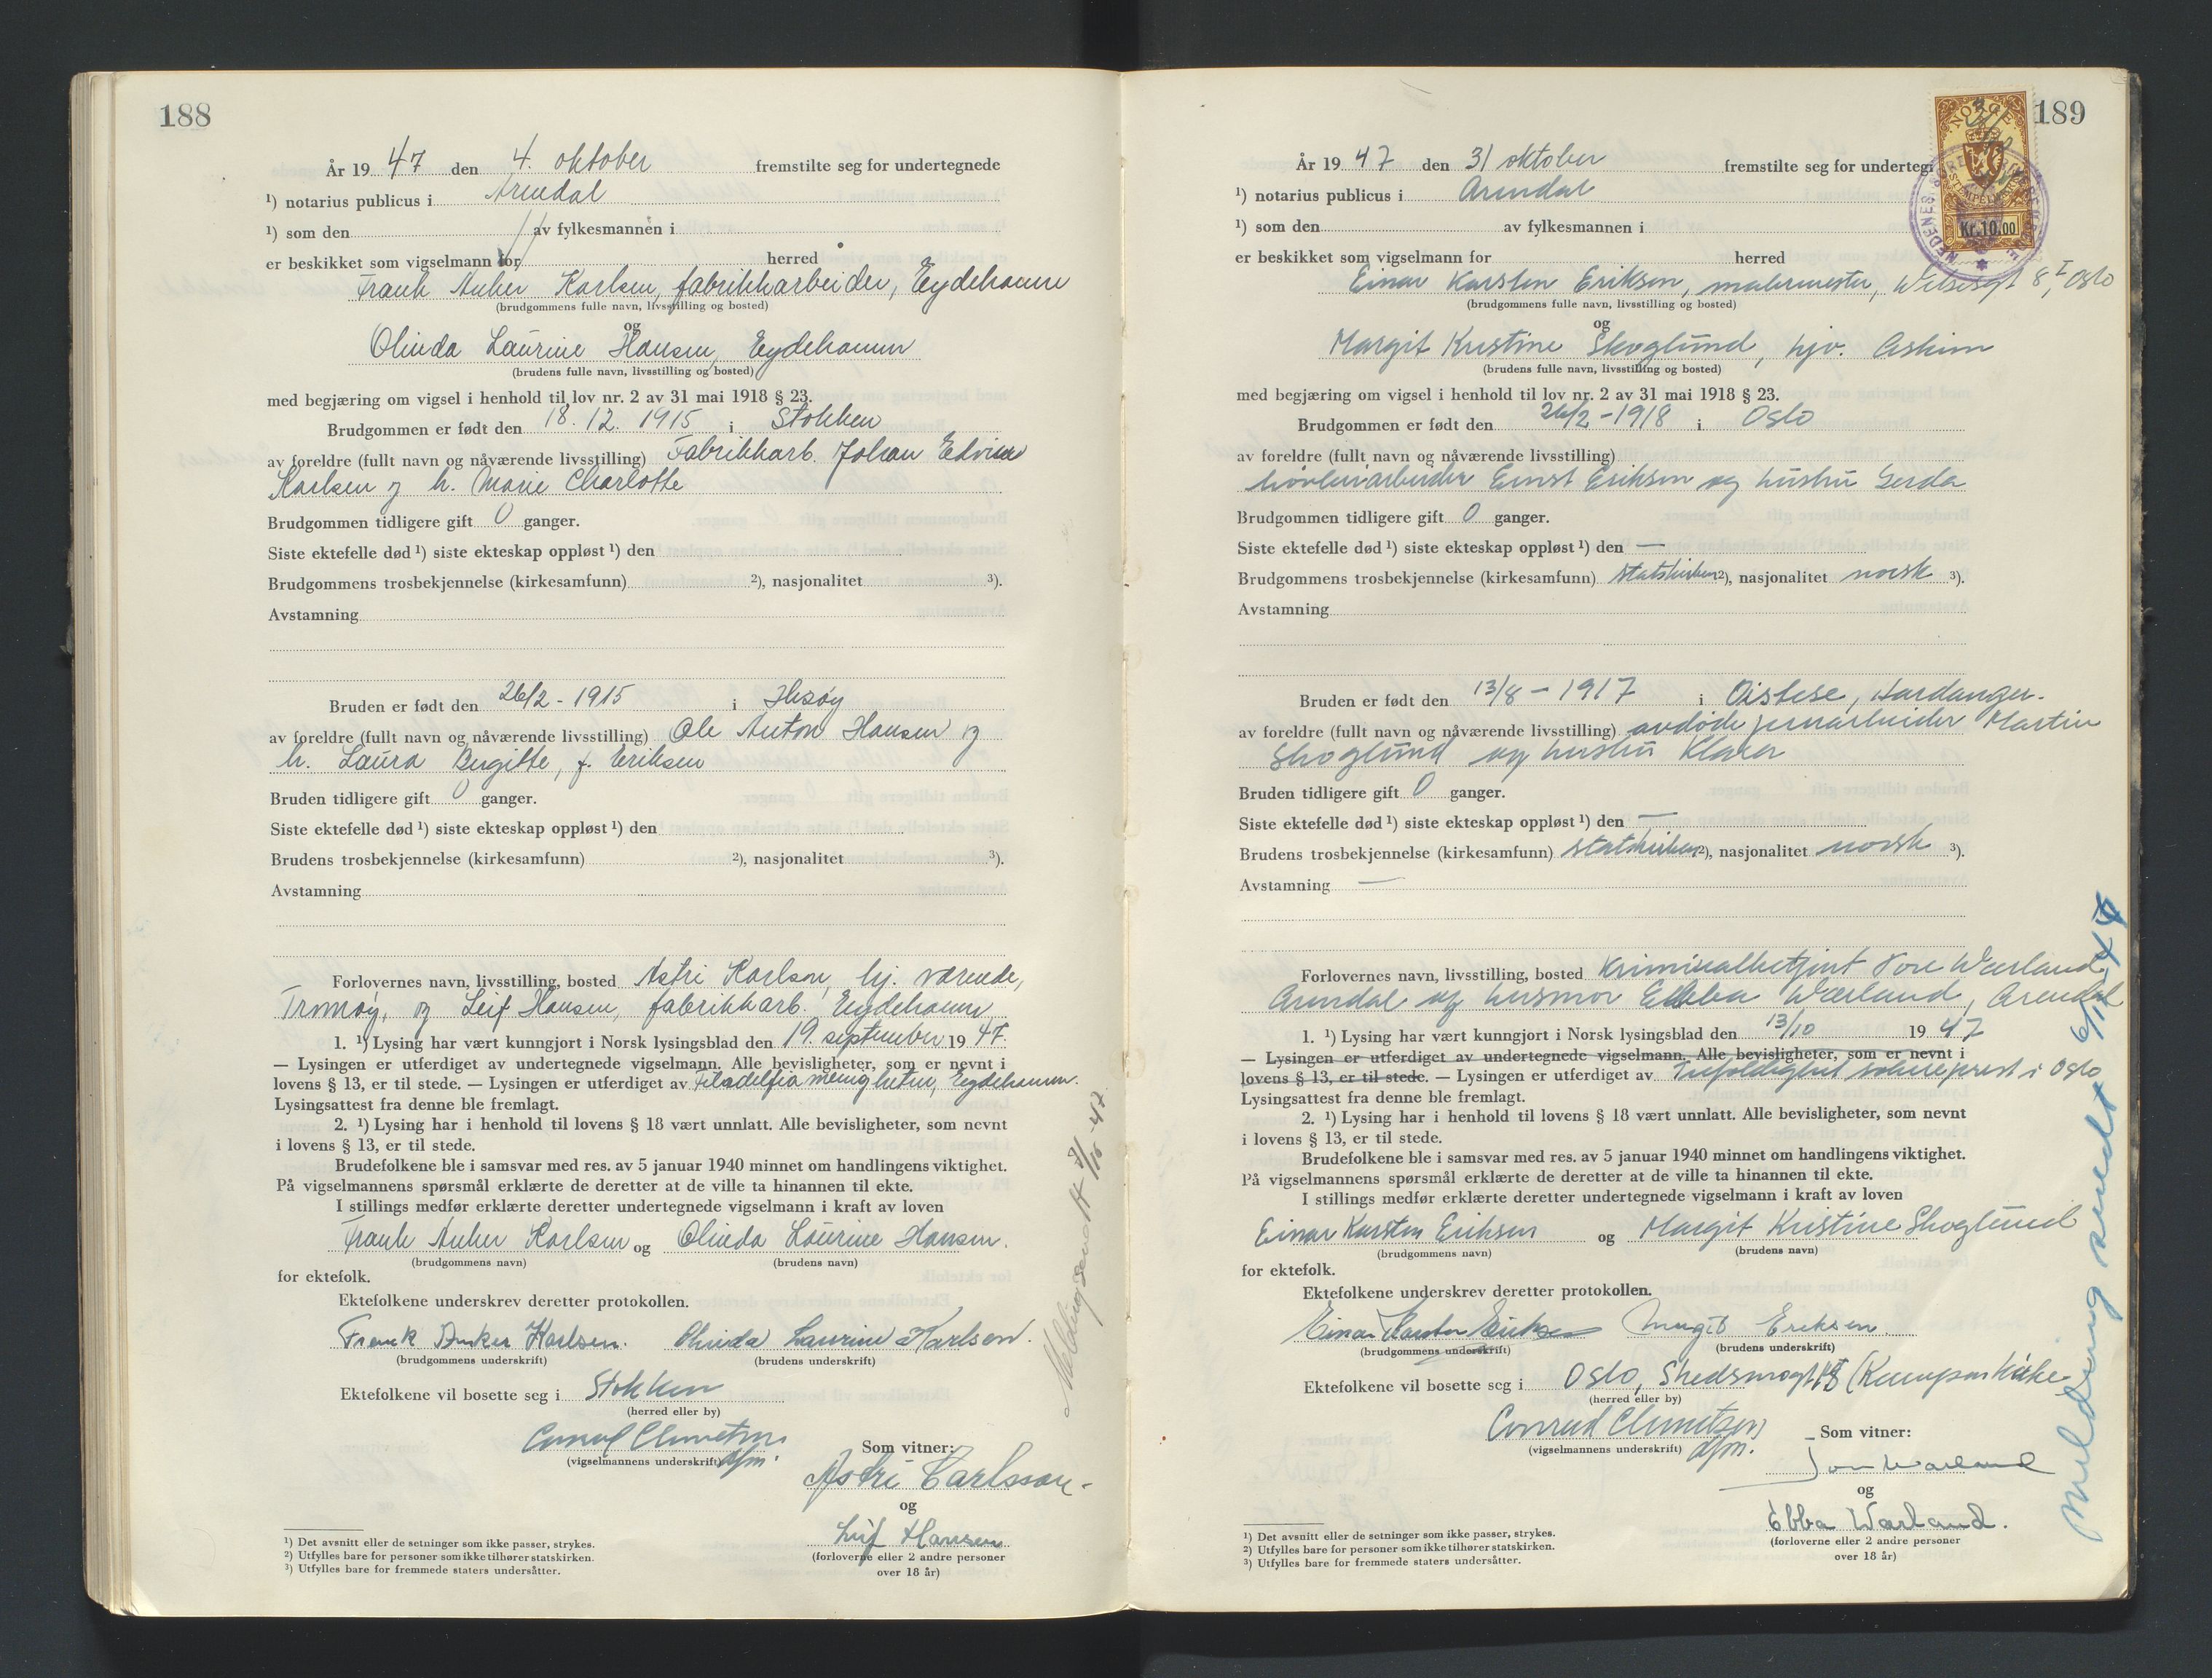 188
År 19 47 den 4. oktober fremstilte seg for undertegnede
¹) notarius publicus i Arendal
¹) som den av fylkesmannen i
er beskikket som vigselmann for herred
Frank Anker Karlsen, fabrikkarbeider, Eydehavn
(brudgommens fulle navn, livsstilling og bosted)
og
Olinda Laurine Hansen, Eydehavn
(brudens fulle navn, livsstilling og bosted)
med begjæring om vigsel i henhold til lov nr. 2 av 31 mai 1918 § 23.
Brudgommen er født den 18. 12. 1915 i Stokken
av foreldre (fullt navn og nåværende livsstilling) Fabrikkarb. Johan Edvin
Karlsen og h. Marie Charlotte
Brudgommen tidligere gift 0 ganger.
Siste ektefelle død ¹) siste ekteskap oppløst ¹) den
Brudgommens trosbekjennelse (kirkesamfunn) ²), nasjonalitet ³).
Avstamning
Bruden er født den 26/2 - 1915 i Hisøy
av foreldre (fullt navn og nåværende livsstilling) Ole Anton Hansen og
h. Laura Birgitte, f. Eriksen
Bruden tidligere gift 0 ganger.
Siste ektefelle død ¹) siste ekteskap oppløst ¹) den
Brudens trosbekjennelse (kirkesamfunn) ²), nasjonalitet ³).
Avstamning
Forlovernes navn, livsstilling, bosted Astri Karlson, hj. værende,
Tromøy, og Leif Hansen, fabrikkarb. Eydehavn
1. ¹) Lysing har vært kunngjort i Norsk lysingsblad den 19. september 19 47.
— Lysingen er utferdiget av undertegnede vigselmann. Alle bevisligheter, som er nevnt i
lovens § 13, er til stede. — Lysingen er utferdiget av Filadelfia menigheten, Eydehavn.
Lysingsattest fra denne ble fremlagt.
2. ¹) Lysing har i henhold til lovens § 18 vært unnlatt. Alle bevisligheter, som nevnt
i lovens § 13, er til stede.
Brudefolkene ble i samsvar med res. av 5 januar 1940 minnet om handlingens viktighet.
På vigselmannens spørsmål erklærte de deretter at de ville ta hinannen til ekte.
I stillings medfør erklærte deretter undertegnede vigselmann i kraft av loven
Frank Anker Karlsen og Olinda Laurine Hansen.
(brudgommens navn) (brudens navn)
for ektefolk.
Ektefolkene underskrev deretter protokollen.
Frank Anker Karlsen. Olinda Laurine Karlsen.
(brudgommens underskrift) (brudens underskrift)
Ektefolkene vil bosette seg i Stokken
(herred eller by)
Conrad Clemetsen
(vigselmannens underskrift) dfm.
Som vitner:
Astri Carlsson
og
Leif Hansen
(forloverne eller 2 andre personer
over 18 år)
¹) Det avsnitt eller de setninger som ikke passer, strykes.
²) Utfylles bare for personer som ikke tilhører statskirken.
³) Utfylles bare for fremmede staters undersåtter.
Melding sendt /10-47.
189
NORGE
Kr. 10.00
År 19 47 den 31 oktober fremstilte seg for undertegn
¹) notarius publicus i Arendal
¹) som den av fylkesmannen i
er beskikket som vigselmann for herred
Einar Karsten Eriksen, malermester, 8 I, Oslo
(brudgommens fulle navn, livsstilling og bosted)
og
Margit Kristine Skoglund, hjv. Askim
(brudens fulle navn, livsstilling og bosted)
med begjæring om vigsel i henhold til lov nr. 2 av 31 mai 1918 § 23.
Brudgommen er født den 26/2 - 1918 i Oslo
av foreldre (fullt navn og nåværende livsstilling)
høvleriarbeider Ernst Eriksen og hustru Gerda
Brudgommen tidligere gift 0 ganger.
Siste ektefelle død ¹) siste ekteskap oppløst ¹) den —
Brudgommens trosbekjennelse (kirkesamfunn) statskirken ²), nasjonalitet norsk ³).
Avstamning
Bruden er født den 13/8 - 1917 i Øistese, Hardanger.
av foreldre (fullt navn og nåværende livsstilling) avdøde jernarbeider Martin
Skoglund og hustru Klara
Bruden tidligere gift 0 ganger.
Siste ektefelle død ¹) siste ekteskap oppløst ¹) den —
Brudens trosbekjennelse (kirkesamfunn) statskirken ²), nasjonalitet norsk ³).
Avstamning —
Forlovernes navn, livsstilling, bosted Kriminalbetjent Tore Wærland,
Arendal og husmor Ebba Wærland, Arendal
1. ¹) Lysing har vært kunngjort i Norsk lysingsblad den 13/10 19 47
— Lysingen er utferdiget av undertegnede vigselmann. Alle bevisligheter, som er nevnt i
lovens § 13, er til stede. — Lysingen er utferdiget av Trefoldighet sokneprest i Oslo
Lysingsattest fra denne ble fremlagt.
2. ¹) Lysing har i henhold til lovens § 18 vært unnlatt. Alle bevisligheter, som nevnt
i lovens § 13, er til stede.
Brudefolkene ble i samsvar med res. av 5 januar 1940 minnet om handlingens viktighet.
På vigselmannens spørsmål erklærte de deretter at de ville ta hinannen til ekte.
I stillings medfør erklærte deretter undertegnede vigselmann i kraft av loven
Einar Karsten Eriksen og Margit Kristine Skoglund
(brudgommens navn) (brudens navn)
for ektefolk.
Ektefolkene underskrev deretter protokollen.
Einar Karsten Eriksen Margit Eriksen.
(brudgommens underskrift) (brudens underskrift)
Ektefolkene vil bosette seg i Oslo, Skedsmogt 18 (Kampen Kirke
(herred eller by)
Conrad Clemetsen
(vigselmannens underskrift) dfm.
Som vitner:
Tore Wærland
og
Ebba Wærland.
(forloverne eller 2 andre personer
over 18 år)
¹) Det avsnitt eller de setninger som ikke passer, strykes.
²) Utfylles bare for personer som ikke tilhører statskirken.
³) Utfylles bare for fremmede staters undersåtter.
Melding sendt 6/11 47